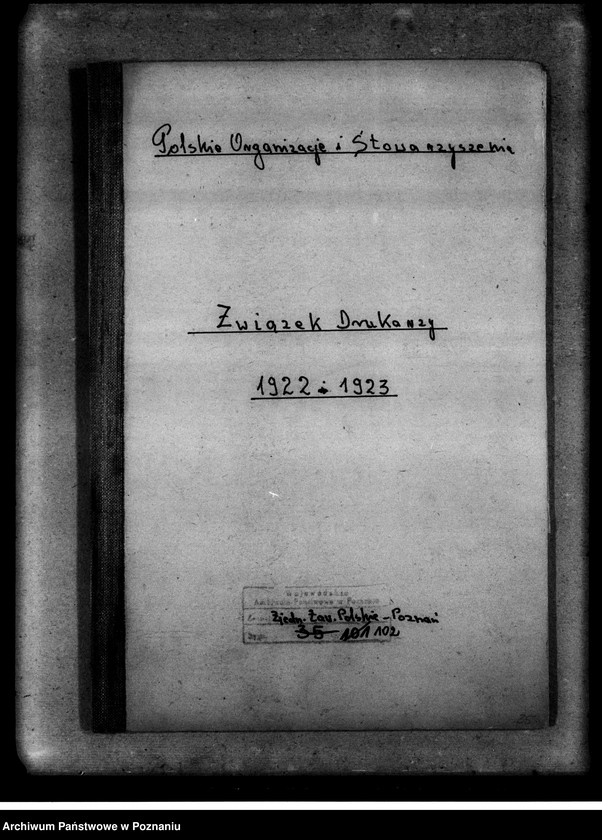 Polskie Organizacje i Stowarzyszenia
Związek Drukarzy
1922 i 1923
Wojewódzkie
Archiwum Państwowe w Poznaniu
Zjedn. Zaw. Polskie - Poznań
35 101 102
Archiwum Państwowe w Poznaniu